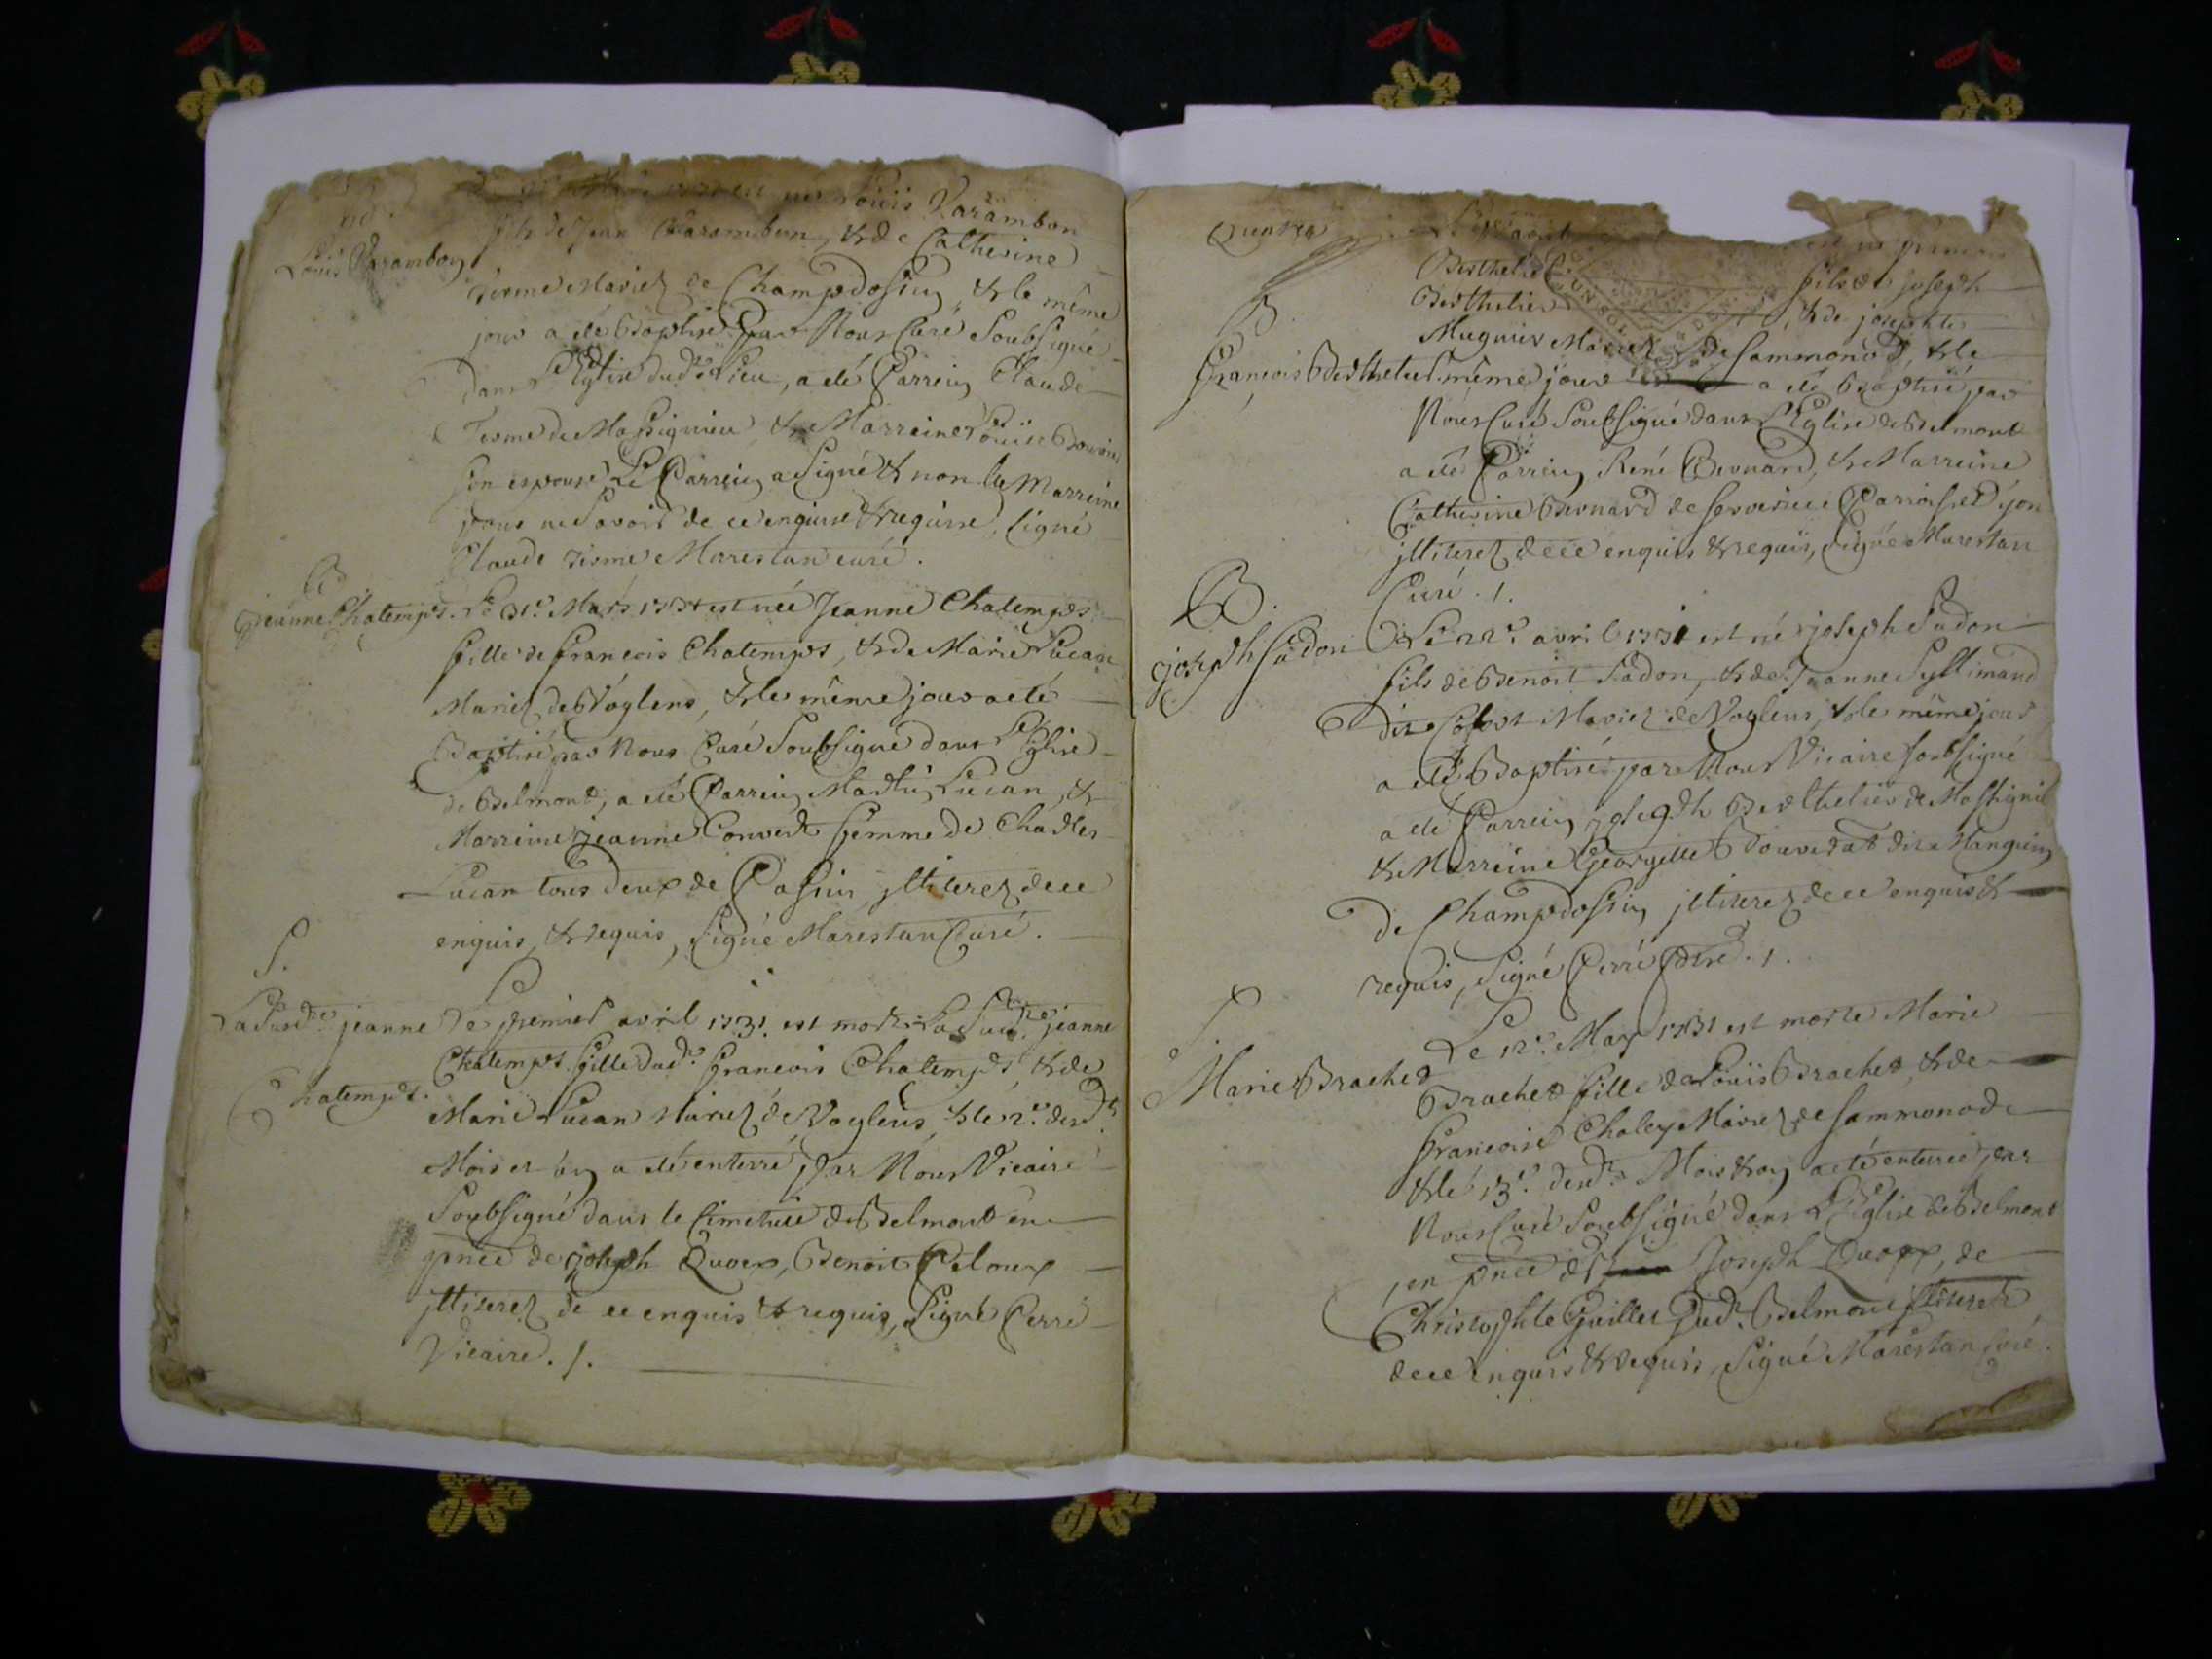 est né Louis Varambon
B.
Louis Varambon
fils de Jean Varambon, & de Catherine
Terme Mariez de Champdossin, & le même
jour a été Baptisé par Nous Curé Soubsigné
dans l'Eglise dud.t Lieu, a été Parrein Claude
Terme de Massignieu, & Marreine Louise
son espouse, Le Parrein a Signé & non la Marreine
pour ne Savoir de ce enquise & requise, Signé
Claude Terme Marestan curé.
B
Jeanne Chatemps. Le 31.e Mars 1731 est née Jeanne Chatemps
fille de francois Chatemps, & de Marie Lucan
Mariez de Voglens, & le même jour a eté
Baptisé par Nous Curé Soubsigné dans l'Eglise
de Belmont, a été Parrein Martin Lucan, &
Marreine Jeanne Convert femme de Charles
Lucan tous deux de Possin, illiterez de ce
enquis, & requis, Signé Marestan Curé.
S.
La Susd.te jeanne Le premier avril 1731 est morte La Susd.te jeanne
Chatemps. Chatemps fille dud.t francois Chatemps, & de
Marie Lucan Mariez de Voglens, & le 2.e desd.ts
Mois et an a été enterré par Nous Vicaire
Soubsigné dans le Cimetiere de Belmont en
pnce de joseph Quoex, Benoit Peloux
illiterez de ce enquis & requis, Signé Perré
Vicaire. /.
Quatre
Le avril est né francois
Berthelier fils de joseph
Berthelier, & de josephte
B.
Muguier Mariez de Sammonod, & le
francois Berthelier. même jour a été Baptisé par
Nous Curé Soubsigné dans L'Eglise de Belmont
a été Parrein René Bernard, & Marreine
Catherine Bernard de Parroisse
illiterez de ce enquis & requis, Signé Marestan
Curé. /.
B.
joseph Sadon Le 22.e avril 1731 est né joseph Sadon
fils de Benoit Sadon, & de Jeanne
dit Mariez de Voglens, & le même jour
a été Baptisé par Nous Vicaire soubsigné
a été Parrein joseph Berthelier de Massignieu
& Marreine Georgette dit Manguin
de Champdossin illiterez de ce enquis &
requis, Signé Perré. /.
S
Marie Brachet
Le 12.e May 1731 est morte Marie
Brachet fille de Louis Brachet & de
francoise Chaley Mariez de Sammonod
& le 13.e desd.ts Mois & an a été enterrée par
Nous Curé Soubsigné dans L'Eglise de Belmont
en pnce de Joseph Quoex, de
Christophle Guillet dud.t Belmont illiterez
de ce enquis & requis, Signé Marestan curé.